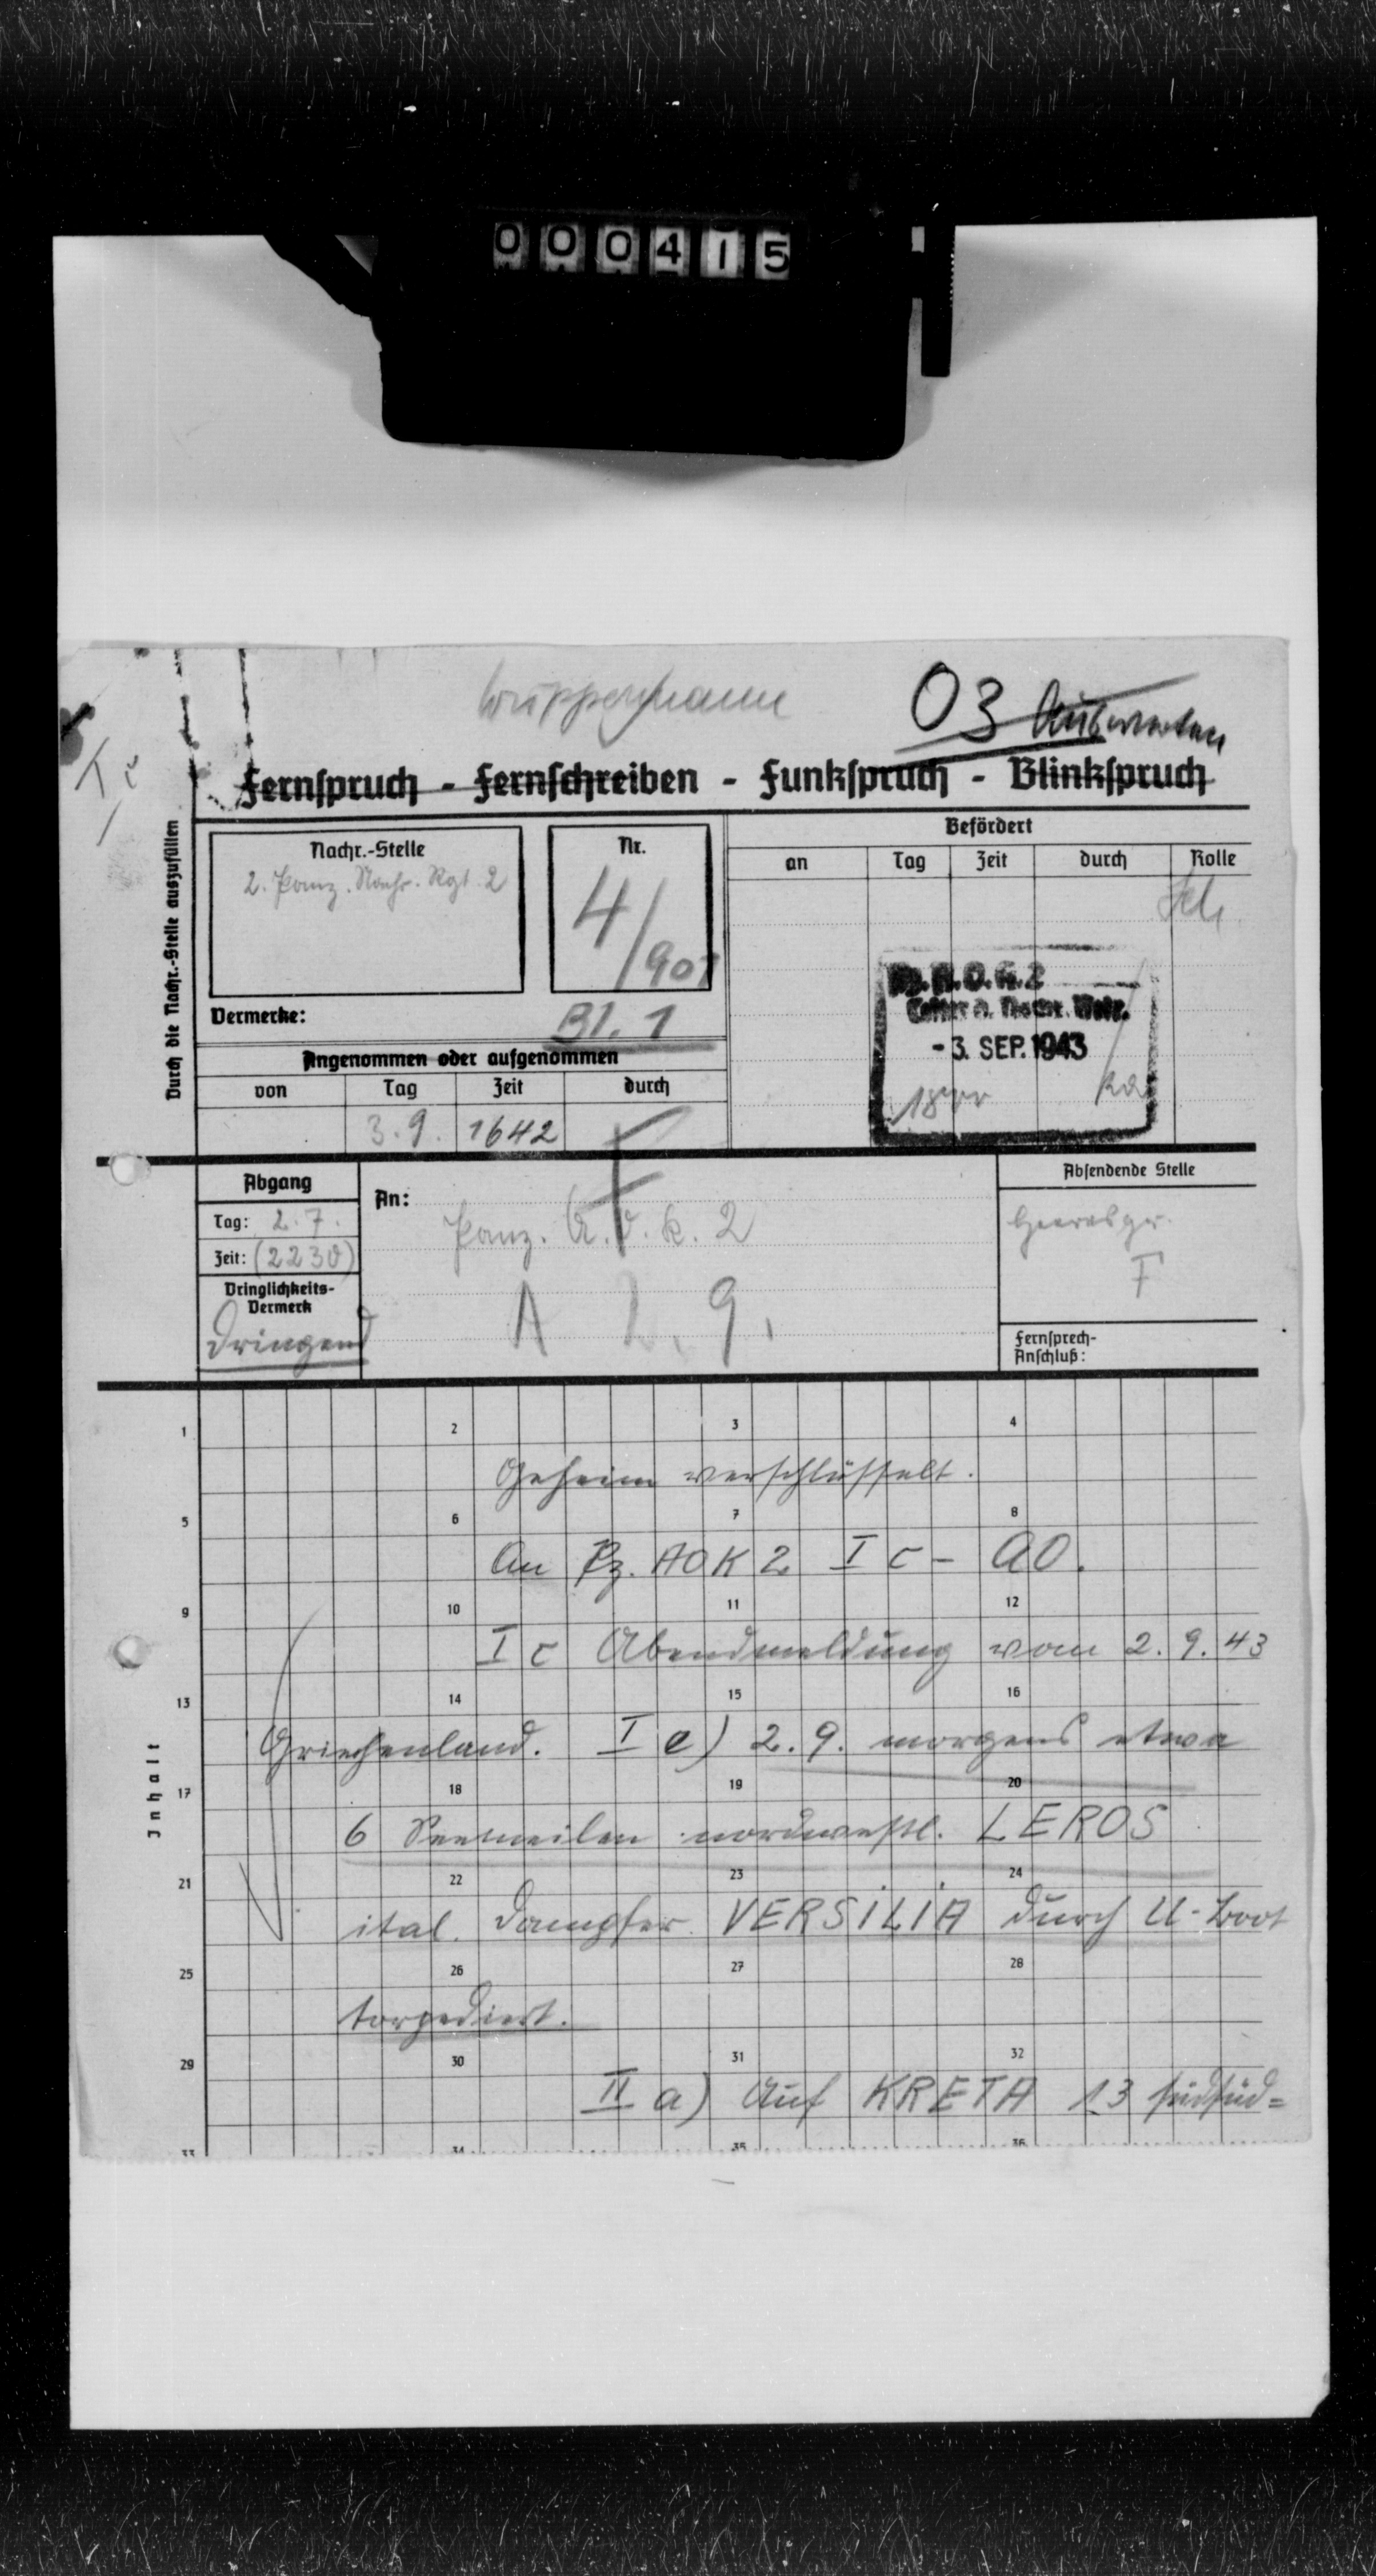 000415
Wuppermann
03 Auswerten
Ic
Fernspruch - Fernschreiben - Funkspruch - Blinkspruch
Durch die Nachr.-Stelle auszufüllen
Nachr.-Stelle
2. Panz. Nachr. Rgt. 2
Nr.
4/901
Bl. 1
Vermerke:
Angenommen oder aufgenommen
von Tag Zeit durch
3.9. 1642
Befördert
an Tag Zeit durch Rolle
- 3. SEP. 1943
Abgang
Tag: 2.7.
Zeit: (2230)
Dringlichkeits-
Vermerk
Dringend
An:
Panz. A.O.K. 2
A 2.9.
Absendende Stelle
Heeresgr.
F
Fernsprech-
Anschluß:
Inhalt
1 2 3 4
Geheim verschlüsselt.
5 6 7 8
An Pz. AOK 2 Ic - AO.
9 10 11 12
Ic Abendmeldung vom 2.9.43
13 14 15 16
Griechenland. I e) 2.9. morgens etwa
17 18 19 20
6 Seemeilen nordwestl. LEROS
21 22 23 24
ital. Dampfer VERSILIA durch U-Boot
25 26 27 28
torpediert.
29 30 31 32
II a) Auf KRETA 13 südsüd=
33 34 35 36